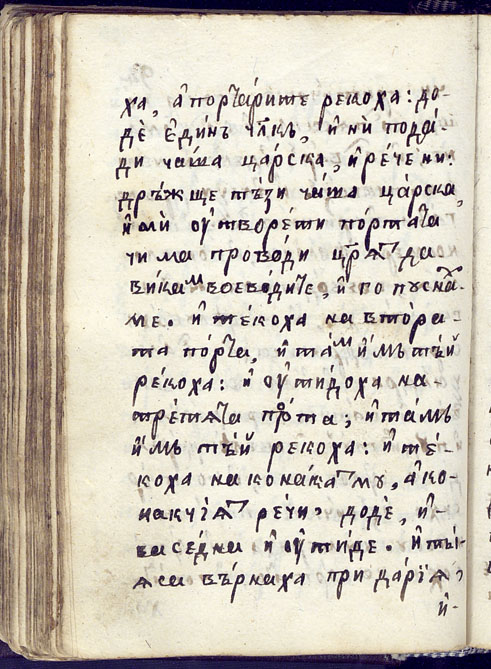 ха, а҆ порта́рите рекоха: до-
дѐ е҆ди́нъ чл҃къ, и҆ нѝ пода́-
ди чаша ца́рска, и҆ рече ни:
дръжще тъзи чаша ца́рска,
и҆ мѝ ѹ҆твори́ ти по́ртата
чи ма прово́ди цр҃ѧт да
викам воево́дите, и҆ го пусна-
ме. и҆ те́коха на вто́ра-
та по́рта, и҆ там и҆мъ тъй
реко́ха: и҆ ѹ҆тидоха на-
третѧта порта; и҆ та́мъ
и҆мъ тъй рекоха: и҆ те́-
коха на кона́кат му, а҆ ко-
накчїѧт речи̑ додѐ, и҆-
васедна и҆ ѹ҆ти́де. и҆ ты́-
ѧ са върнаха при да́рїѧ,
и҆-